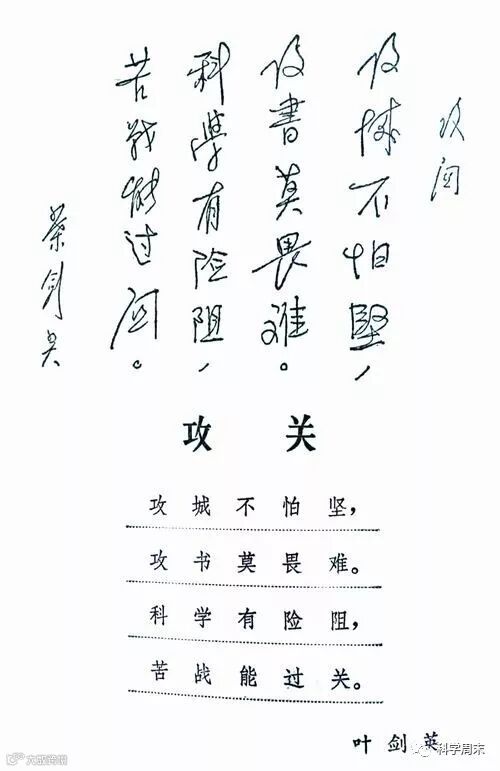 攻关
攻城不怕堅，
攻書莫畏难。
科學有险阻，
苦战能过関。
葉剑英
攻关
攻城不怕坚，
攻书莫畏难。
科学有险阻，
苦战能过关。
叶剑英
科学周末
大数跨境